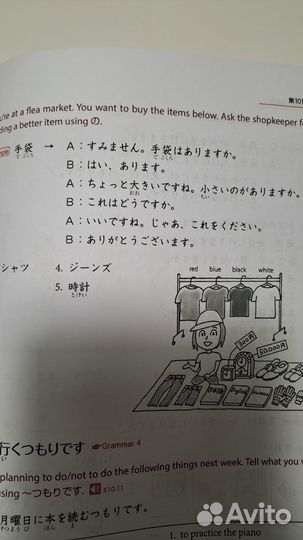 第10
're at a flea market. You want to buy the items below. Ask the shopkeeper f
ding a better item using の.
手袋 → A：すみません。手袋はありますか。
てぶくろ てぶくろ
B：はい、あります。
A：ちょっと大きいですね。小さいのがありますか。
おお ちい
B：これはどうですか。
A：いいですね。じゃあ、これをください。
B：ありがとうございます。
シャツ 4. ジーンズ
5. 時計
とけい
red blue black white
300円
50,000円
日本語 English
行くつもりです Grammar 4
い
planning to do/not to do the following things next week. Tell what you
using ～つもりです. K10-11
月曜日に本を読むつもりです。
げつようび ほん よ
1. to practice the piano
Avito